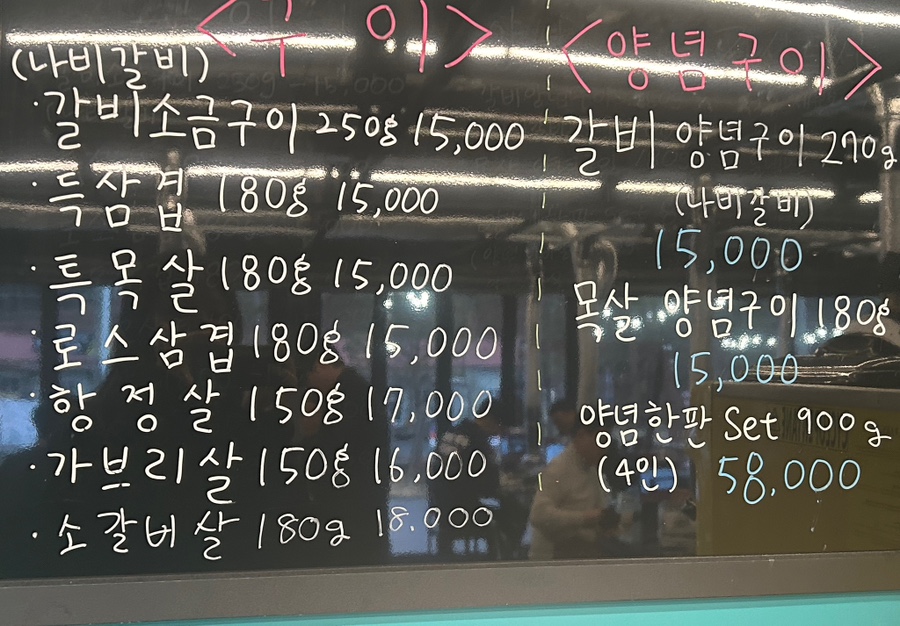 <구 이>
(나비갈비)
·갈비소금구이 250g 15,000
·특삼겹 180g 15,000
·특목살 180g 15,000
·로스삼겹 180g 15,000
·항정살 150g 17,000
·가브리살 150g 16,000
·소갈비살 180g 18.000
<양념구이>
갈비 양념구이 270g
(나비갈비)
15,000
목살 양념구이 180g
15,000
양념한판 Set 900g
(4인) 58,000